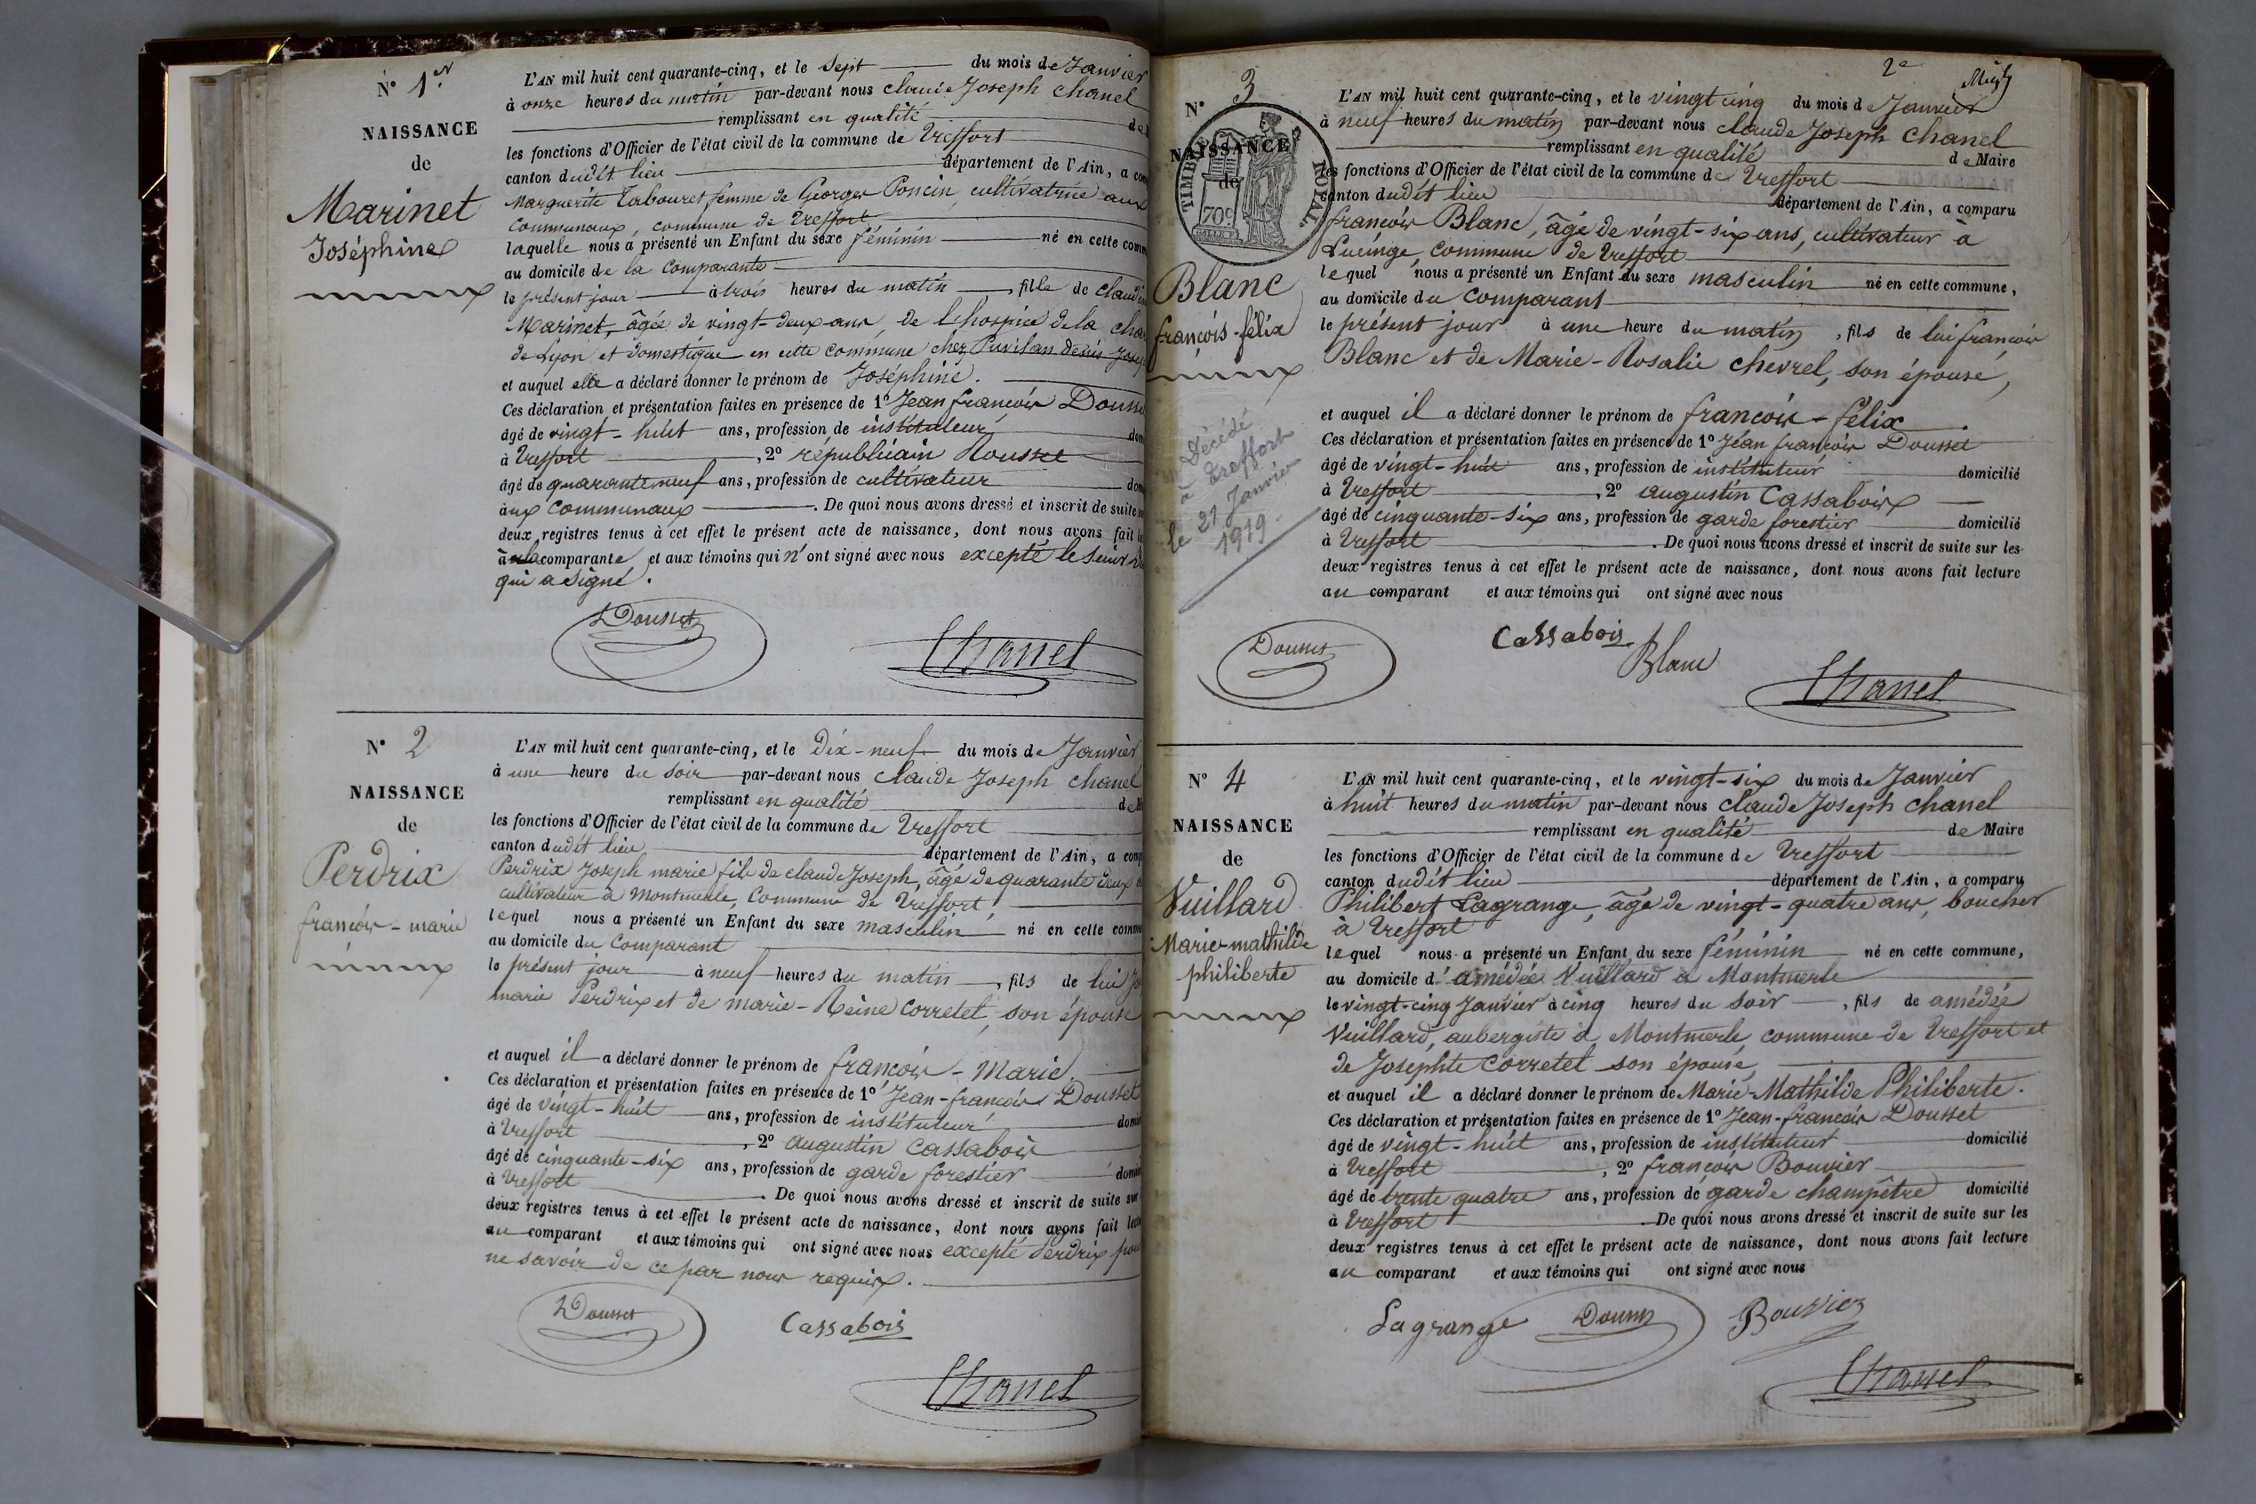 N° 1er
NAISSANCE
de
Marinet
Joséphine
L'AN mil huit cent quarante-cinq, et le sept du mois de Janvier
à onze heures du matin par-devant nous claude Joseph Chanel
remplissant en qualité de
les fonctions d'Officier de l'état civil de la commune de Treffort
canton dudit lieu département de l'Ain, a
Marguerite Torbouret femme de George Poncin, cultivatrice aux
Communaux, commune de Treffort
laquelle nous a présenté un Enfant du sexe féminin né en cette
au domicile de la comparante
le présent jour à trois heures du matin, fille de
Marinet, âgée de vingt-deux ans, de l'hospice de la
de Lyon et domestique en cette commune chez Denis
et auquel elle a déclaré donner le prénom de Joséphine.
Ces déclaration et présentation faites en présence de 1° Jean françois
âgé de vingt-huit ans, profession de instituteur
à Treffort, 2° républicain Rousset
âgé de quarante neuf ans, profession de cultivateur
aux Communaux. De quoi nous avons dressé et inscrit de suite
deux registres tenus à cet effet le présent acte de naissance, dont nous avons fait
à la comparante et aux témoins qui n'ont signé avec nous excepté le sieur
qui a signé.
Dousset
Chanel
N° 2
NAISSANCE
de
Perdrix
françois-marie
L'AN mil huit cent quarante-cinq, et le Dix-neuf du mois de Janvier
à une heure du soir par-devant nous claude Joseph chanel
remplissant en qualité de
les fonctions d'Officier de l'état civil de la commune de Treffort
canton dudit lieu département de l'Ain, a
Perdrix Joseph marie fils de claude Joseph, âgé de quarante deux
cultivateur à Montmerle, Commune de Treffort,
lequel nous a présenté un Enfant du sexe masculin né en cette
au domicile du Comparant
le présent jour à neuf heures du matin, fils de lui
marie Perdrix et de marie-Reine Corretel, son épouse
et auquel il a déclaré donner le prénom de françois-Marie
Ces déclaration et présentation faites en présence de 1° Jean-françois Dousset
âgé de vingt-huit ans, profession de instituteur
à Treffort, 2° augustin Cassabois
âgé de cinquante-six ans, profession de garde forestier
à Treffort. De quoi nous avons dressé et inscrit de suite sur
deux registres tenus à cet effet le présent acte de naissance, dont nous avons fait
au comparant et aux témoins qui ont signé avec nous excepté Perdrix pour
ne savoir de ce par nous requis.
Dousset
Cassabois
Chanel
2e
N° 3
NAISSANCE
de
TIMBRE ROYAL
70c
Blanc
françois-félix
Décédé
à Treffort
le 21 Janvier
1919.
L'AN mil huit cent quarante-cinq, et le vingt cinq du mois de Janvier
à neuf heures du matin par-devant nous claude Joseph Chanel
remplissant en qualité de Maire
les fonctions d'Officier de l'état civil de la commune de Treffort
canton dudit lieu département de l'Ain, a comparu
françois Blanc, âgé de vingt-six ans, cultivateur à
Lucinge, commune de Treffort
lequel nous a présenté un Enfant du sexe masculin né en cette commune,
au domicile du comparant
le présent jour à une heure du matin, fils de lui françois
Blanc et de Marie-Rosalie chevrel, son épouse,
et auquel il a déclaré donner le prénom de françois-félix.
Ces déclaration et présentation faites en présence de 1° Jean françois Dousset
âgé de vingt-huit ans, profession de instituteur domicilié
à Treffort, 2° augustin Cassabois
âgé de cinquante-six ans, profession de garde forestier domicilié
à Treffort. De quoi nous avons dressé et inscrit de suite sur les
deux registres tenus à cet effet le présent acte de naissance, dont nous avons fait lecture
au comparant et aux témoins qui ont signé avec nous
Dousset
Cassabois
Blanc
Chanel
N° 4
NAISSANCE
de
Vuillard
Marie-mathilde
philiberte
L'AN mil huit cent quarante-cinq, et le vingt-six du mois de Janvier
à huit heures du matin par-devant nous claude Joseph chanel
remplissant en qualité de Maire
les fonctions d'Officier de l'état civil de la commune de Treffort
canton dudit lieu département de l'Ain, a comparu
Philibert Lagrange, âgé de vingt-quatre ans, boucher
à Treffort
lequel nous a présenté un Enfant du sexe féminin né en cette commune,
au domicile d'amédée Vuillard à Montmerle
le vingt-cinq Janvier à cinq heures du soir, fils de amédée
Vuillard, aubergiste à Montmerle, commune de Treffort et
de Josephte Corretel son épouse,
et auquel il a déclaré donner le prénom de Marie-Mathilde Philiberte.
Ces déclaration et présentation faites en présence de 1° Jean-françois Dousset
âgé de vingt-huit ans, profession de instituteur domicilié
à Treffort, 2° françois Bouvier
âgé de trente quatre ans, profession de garde champêtre domicilié
à Treffort. De quoi nous avons dressé et inscrit de suite sur les
deux registres tenus à cet effet le présent acte de naissance, dont nous avons fait lecture
au comparant et aux témoins qui ont signé avec nous
Lagrange
Dousset
Bouvier
Chanel